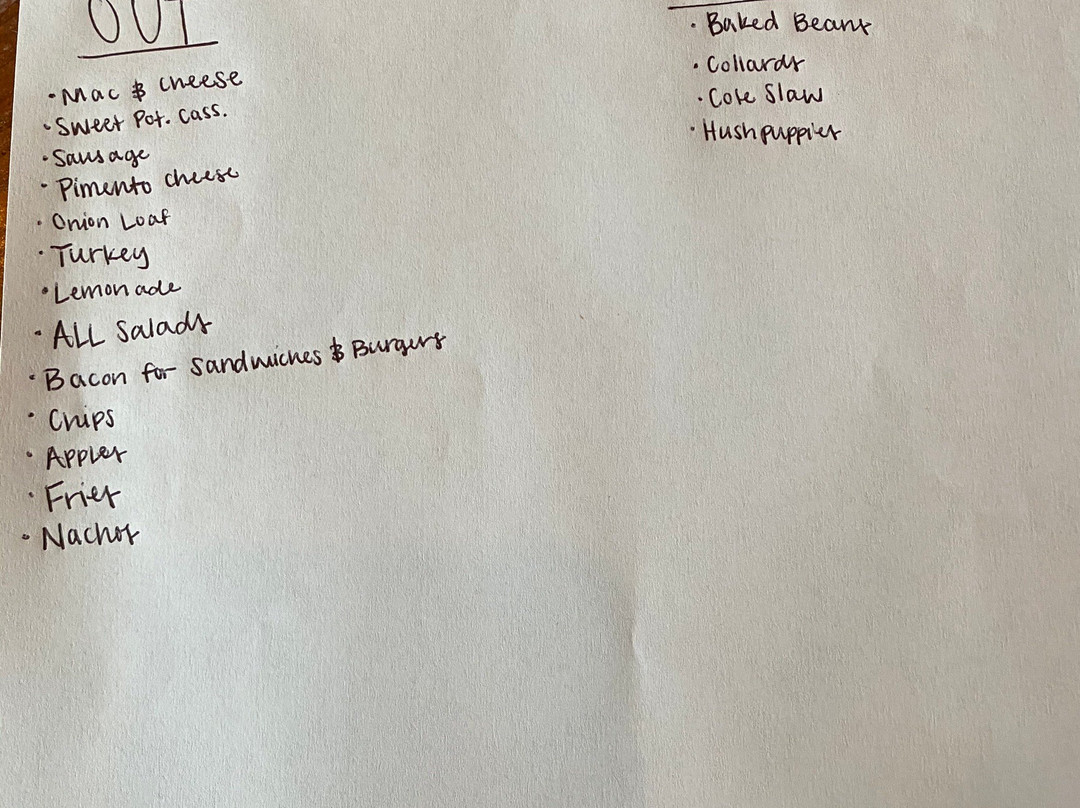 OUT
• Mac & Cheese
• Sweet Pot. Cass.
• Sausage
• Pimento Cheese
• Onion Loaf
• Turkey
• Lemonade
• ALL Salads
• Bacon for Sandwiches & Burgers
• Chips
• Apples
• Fries
• Nachos
• Baked Beans
• Collards
• Cole Slaw
• Hushpuppies